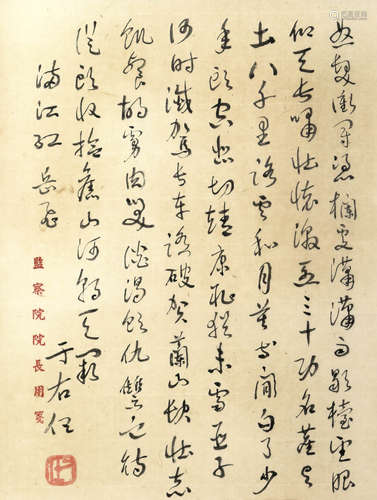 怒髮衝冠憑欄處瀟瀟雨歇擡望眼
仰天長嘯壯懷激烈三十功名塵與
土八千里路雲和月莫等閒白了少
年頭空悲切靖康恥猶未雪臣子
何時滅駕長車踏破賀蘭山缺壯志
飢餐胡虜肉笑談渴飲仇讎血待
從頭收拾舊山河朝天闕
滿江紅 岳飛
于右任
監察院院長用箋